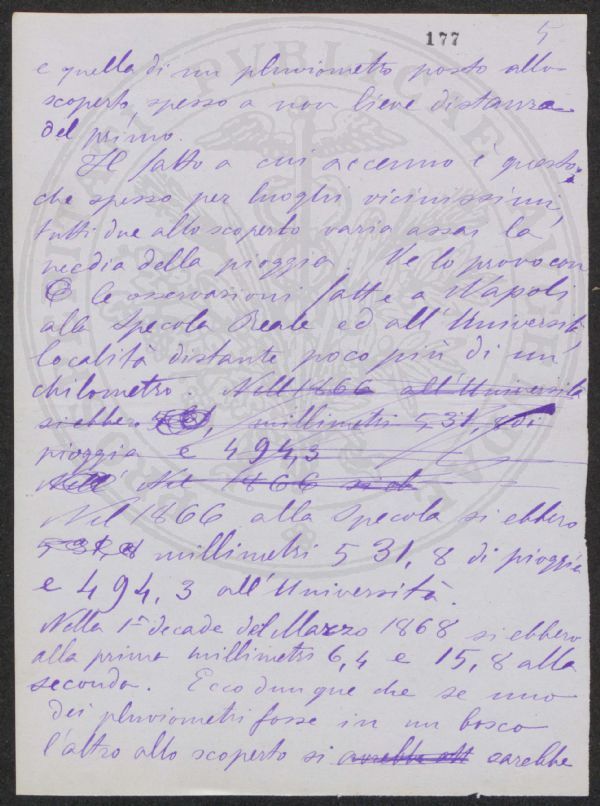 177 5
e quella di un pluviometro posto allo
scoperto spesso a non lieve distanza
del primo.
Il fatto a cui accenno è questo:
che spesso per luoghi vicinissimi,
tutti due allo scoperto varia assai la
media della pioggia. Ve lo provo con
le osservazioni fatte a Napoli
alla Specola Reale ed all'Università
località distante poco più di un
chilometro. Nell 1866 all'Università
si ebbero millimetri 531,8 di
pioggia e 494,3
Nel 1866 si eb
Nel 1866 alla Specola si ebbero
531,8 millimetri 531,8 di pioggia
e 494,3 all'Università.
Nella 1ª decade del Marzo 1868 si ebbero
alla prima millimetri 6,4 e 15,8 alla
seconda. Ecco dunque che se uno
dei pluviometri fosse in un bosco
l'altro allo scoperto si avrebbe att sarebbe